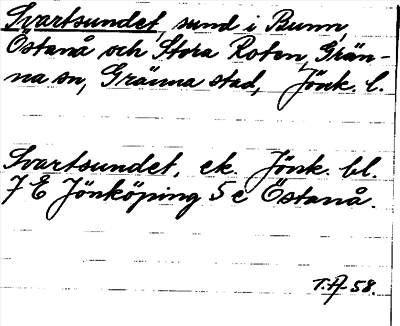 Svartsundet, sund i Bunn,
Östanå och Stora Roten, Grän-
na sn, Gränna stad, Jönk. l.
Svartsundet, ek. Jönk. bl.
7 E Jönköping 5 e Östanå.
T.A-58.